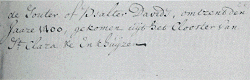 de Souter of Psalter Davids, omtrent den
Jaare 1400, gekomen uijt het Clooster van
St Clara te Enkhuijze